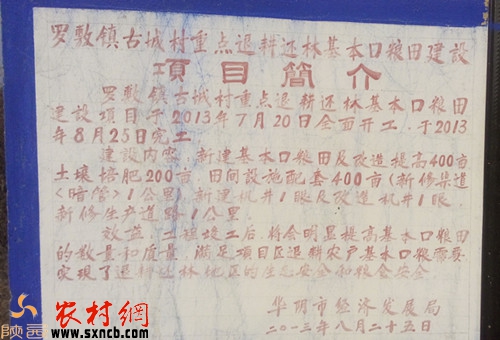 罗敷镇古城村重点退耕还林基本口粮田建設
項目简介
罗敷镇古城村重点退耕还林基本口粮田
建設项目于2013年7月20日全面开工,于2013
年8月25日完工
建設内容:新建基本口粮田及改造提高400亩
土壤培肥200亩,田间設施配套400亩(新修渠道
<暗管>1公里,新建机井1眼及改造机井1眼,
新修生产道路1公里.
效益:工程竣工后,将会明显提高基本口粮田
的数量和质量,满足项目区退耕农户基本口粮需要
实現了退耕还林地区的生态安全和粮食安全
华阴市经济发展局
二〇一三年八月二十五日
农村網
www.sxncb.com